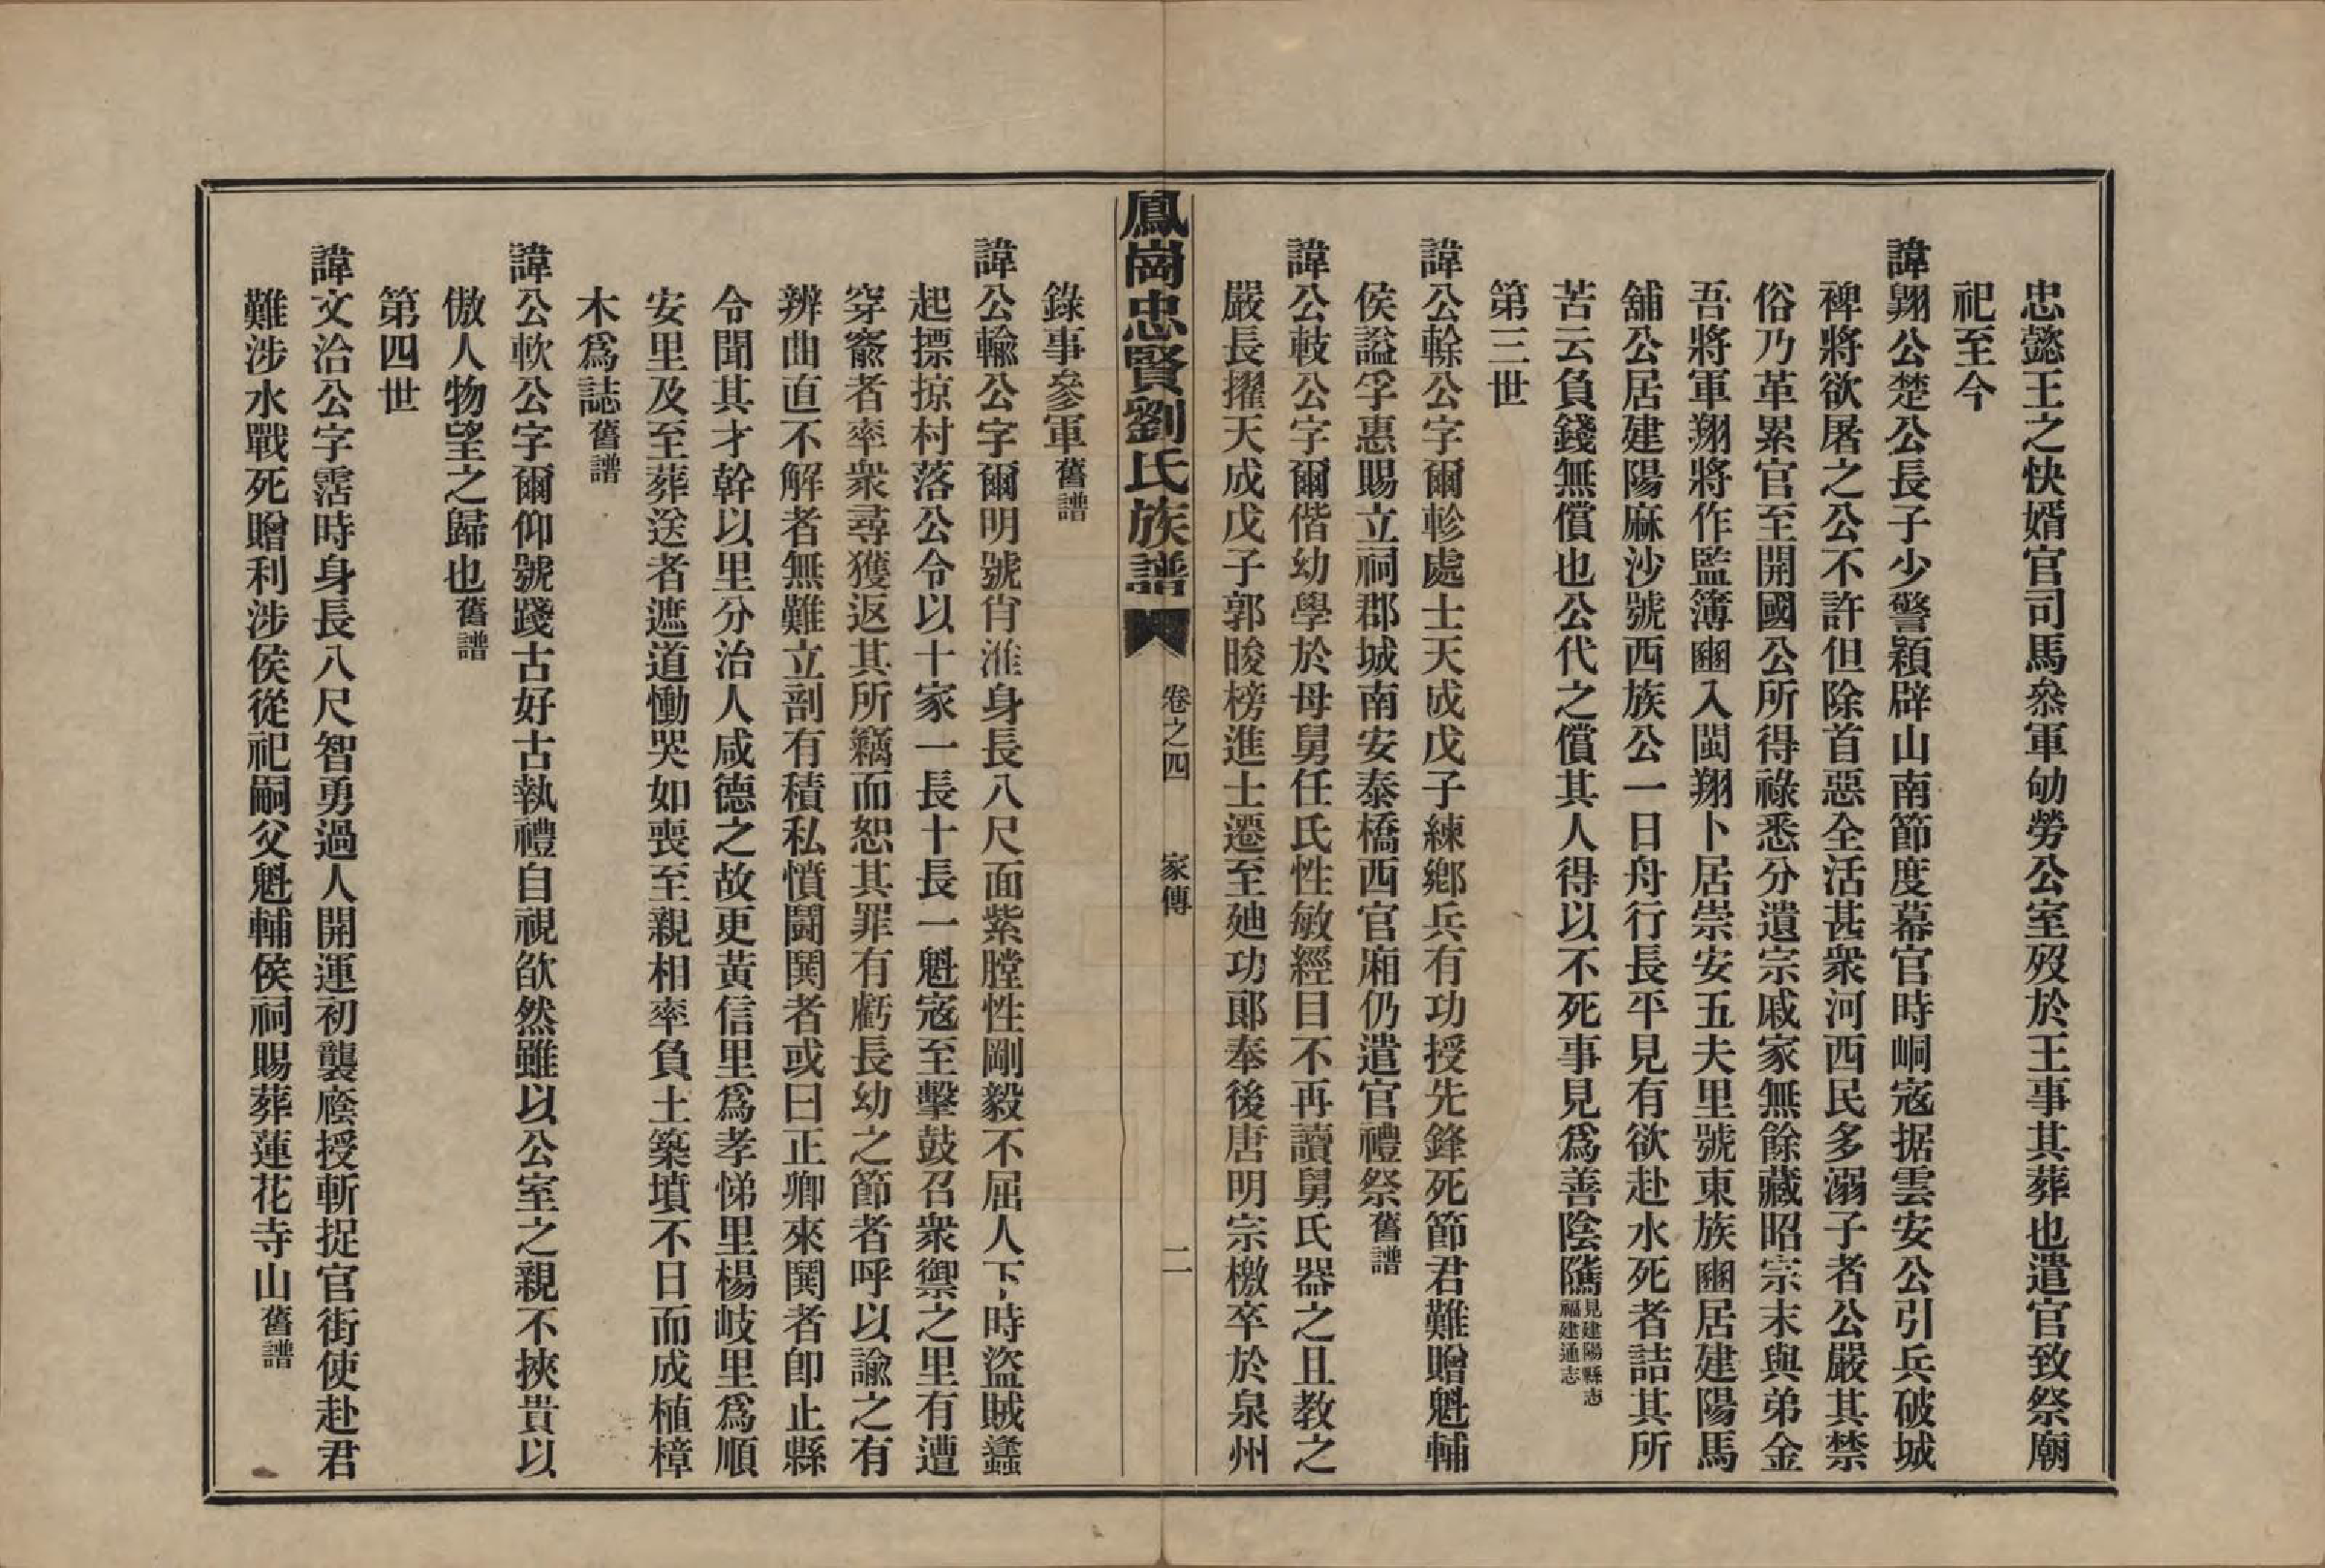 忠懿王之快婿官司馬叅軍劬勞公室歿於王事其葬也遣官致祭廟
祀至今
諱翺公楚公長子少警穎辟山南節度幕官時峒寇据雲安公引兵破城
裨將欲屠之公不許但除首惡全活甚衆河西民多溺子者公嚴其禁
俗乃革累官至開國公所得祿悉分遺宗戚家無餘藏昭宗末與弟金
吾將軍翔將作監簿豳入閩翔卜居崇安五夫里號東族豳居建陽馬
舖公居建陽麻沙號西族公一日舟行長平見有欲赴水死者詰其所
苦云負錢無償也公代之償其人得以不死事見爲善陰隲見建陽縣志福建通志
第三世
諱公榦公字爾軫處士天成戊子練鄉兵有功授先鋒死節君難贈魁輔
侯謚孚惠賜立祠郡城南安泰橋西官廂仍遣官禮祭舊譜
諱公輆公字爾偕幼學於母舅任氏性敏經目不再讀舅氏器之且教之
嚴長擢天成戊子郭晙榜進士遷至廸功郎奉後唐明宗檄卒於泉州
鳳崗忠賢劉氏族譜 卷之四 家傳 二
錄事參軍舊譜
諱公輸公字爾明號肖淮身長八尺面紫膛性剛毅不屈人下時盜賊蠭
起摽掠村落公令以十家一長十長一魁寇至擊鼓召衆禦之里有遭
穿窬者率衆尋獲返其所竊而恕其罪有虧長幼之節者呼以諭之有
辨曲直不解者無難立剖有積私憤鬪鬨者或曰正卿來鬨者卽止縣
令聞其才幹以里分治人咸德之故更黃信里爲孝悌里楊岐里爲順
安里及至葬送者遮道慟哭如喪至親相率負土築墳不日而成植樟
木爲誌舊譜
諱公軟公字爾仰號踐古好古執禮自視欿然雖以公室之親不挾貴以
傲人物望之歸也舊譜
第四世
諱文治公字霑時身長八尺智勇過人開運初襲廕授斬捉官街使赴君
難涉水戰死贈利涉侯從祀嗣父魁輔侯祠賜葬蓮花寺山舊譜